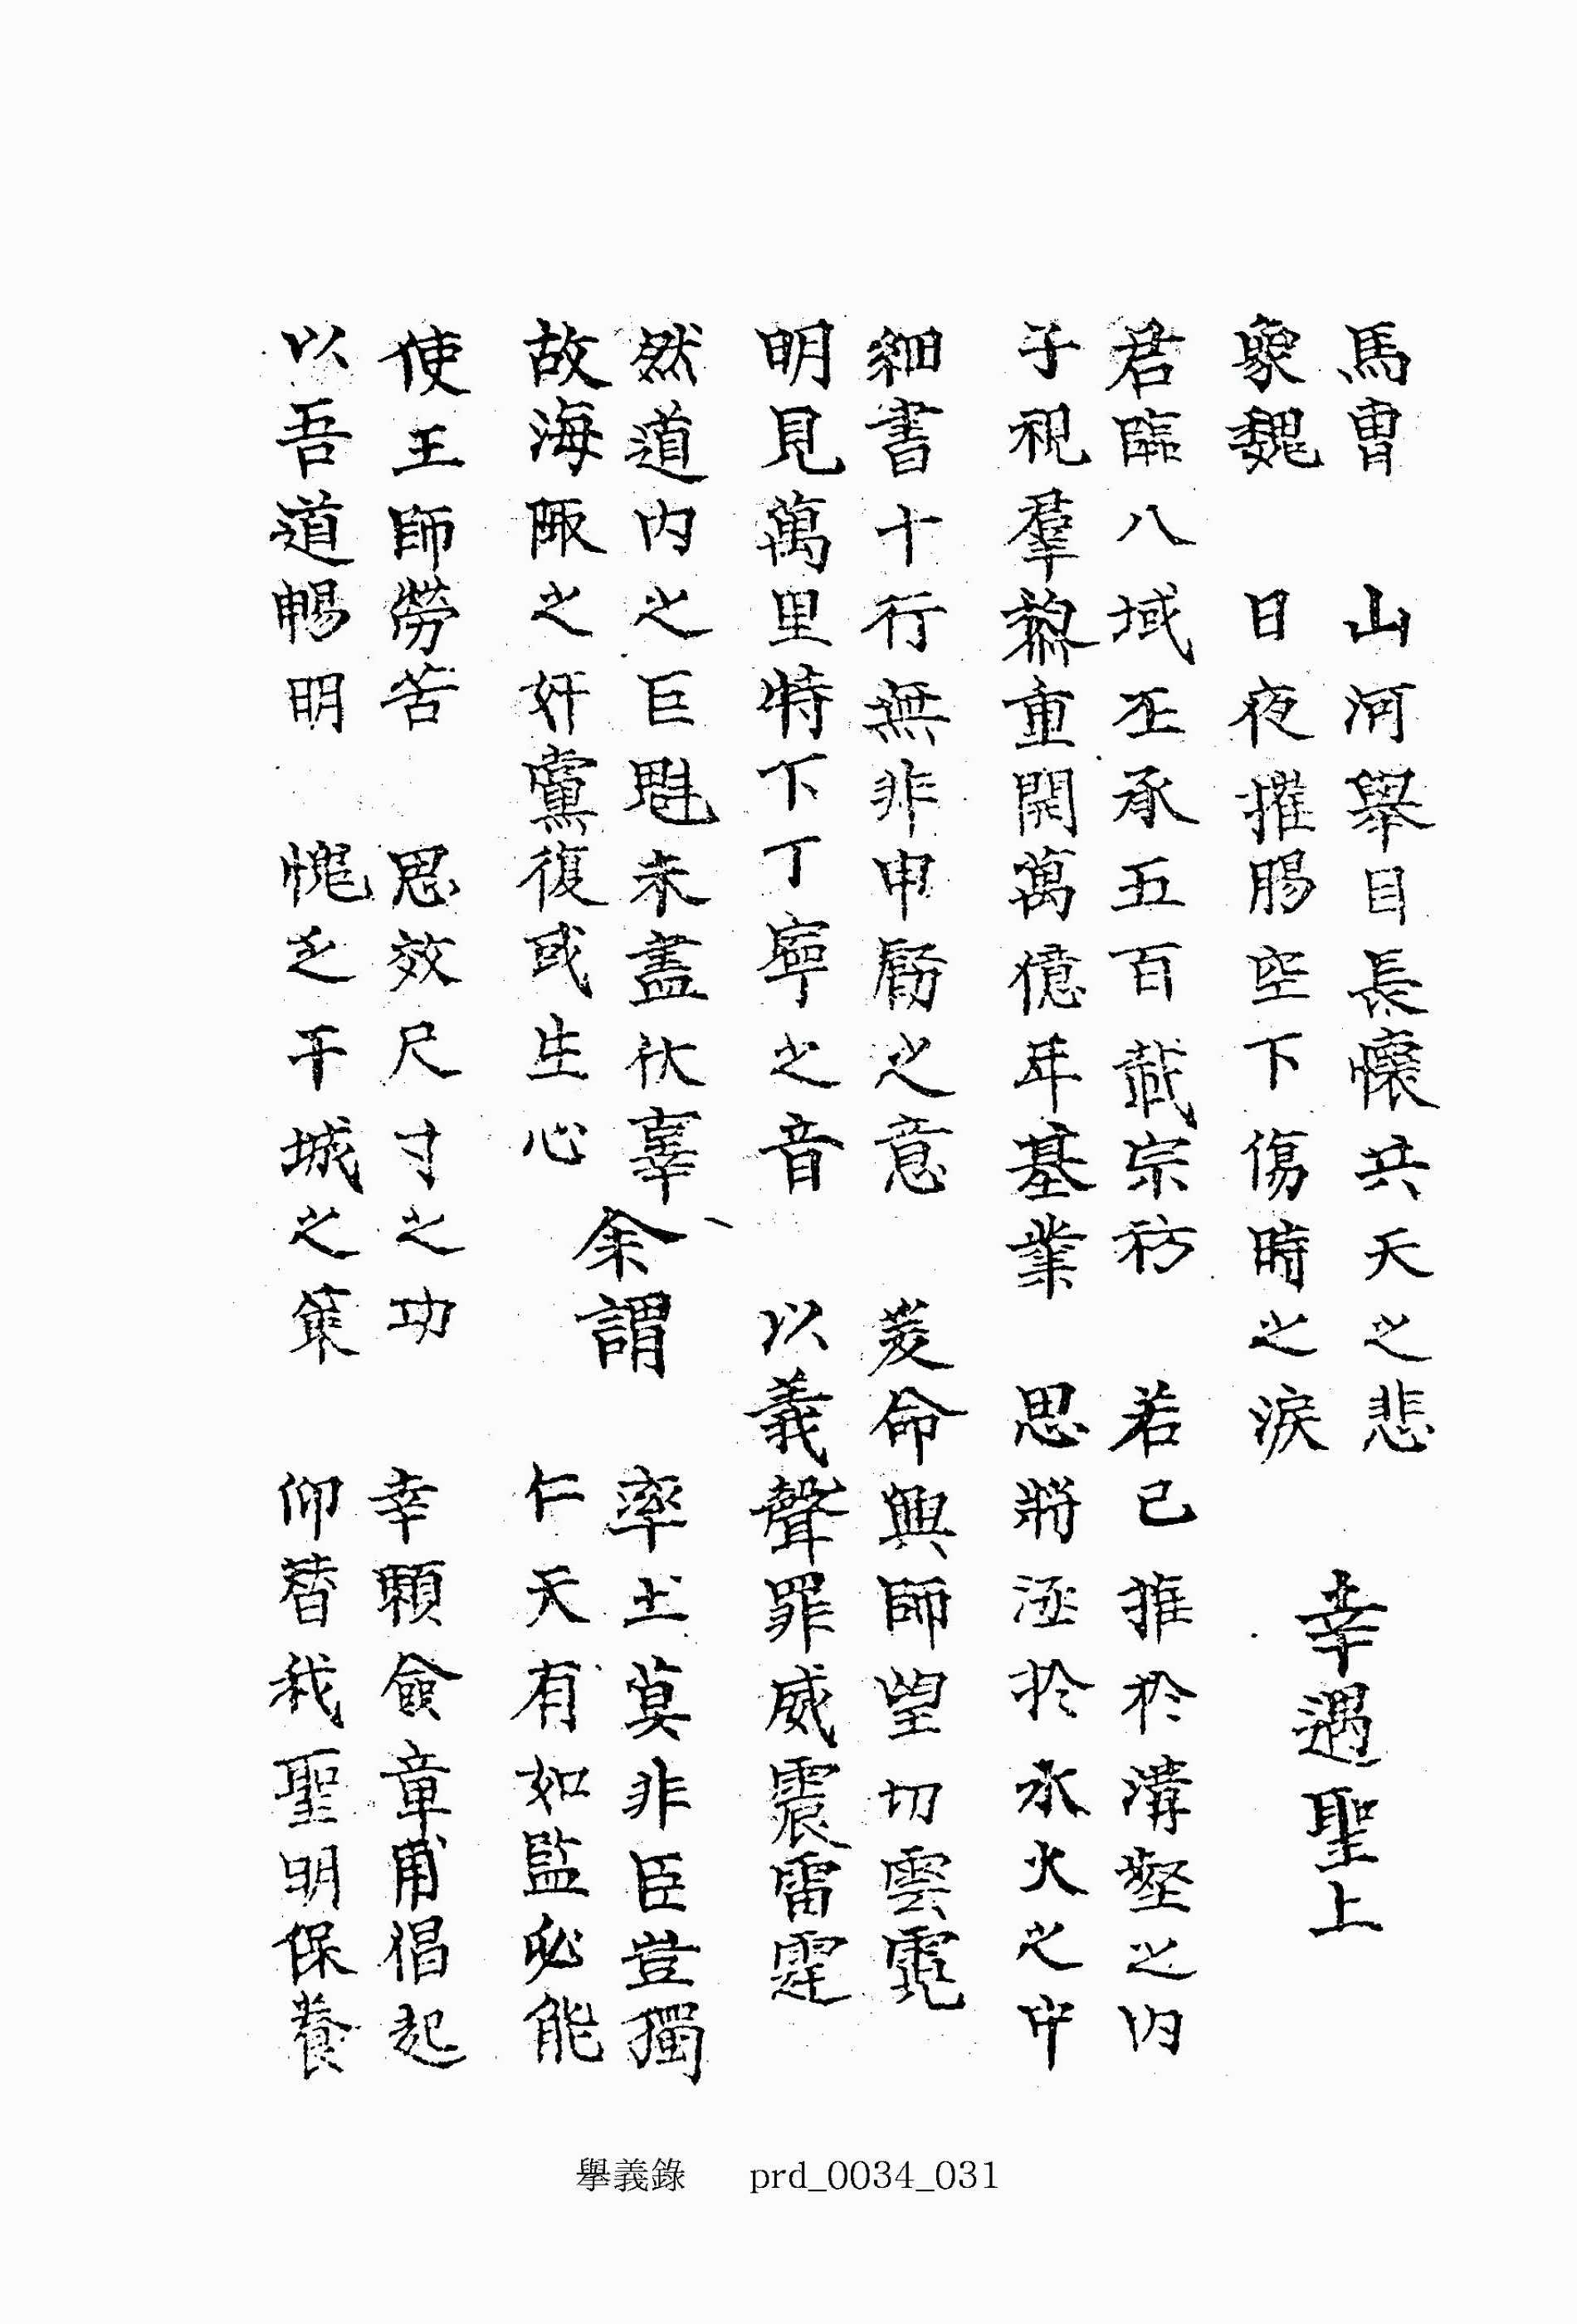 馬曺　山河舉目長懷共天之悲
象魏　日夜摧腸空下傷時之淚
幸遇聖上
君臨八域丕承五百載宗祊　若己推於溝壑之內
子視羣黎重開萬億年基業　思將拯於水火之中
細書十行無非申勵之意　爰命興師望切雲霓
明見萬里特下丁寧之音　以義聲罪威震雷霆
然道內之巨魁未盡伏辜　率土莫非臣豈獨
余謂
故海陬之奸黨復或生心　仁天有如監必能
使王師勞苦　思效尺寸之功　幸願僉章甫倡起
以吾道暢明　愧乏干城之策　仰替我聖明保養
擧義錄　prd_0034_031